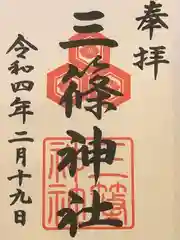 奉拝
三篠神社
令和四年二月十九日
三篠
神社